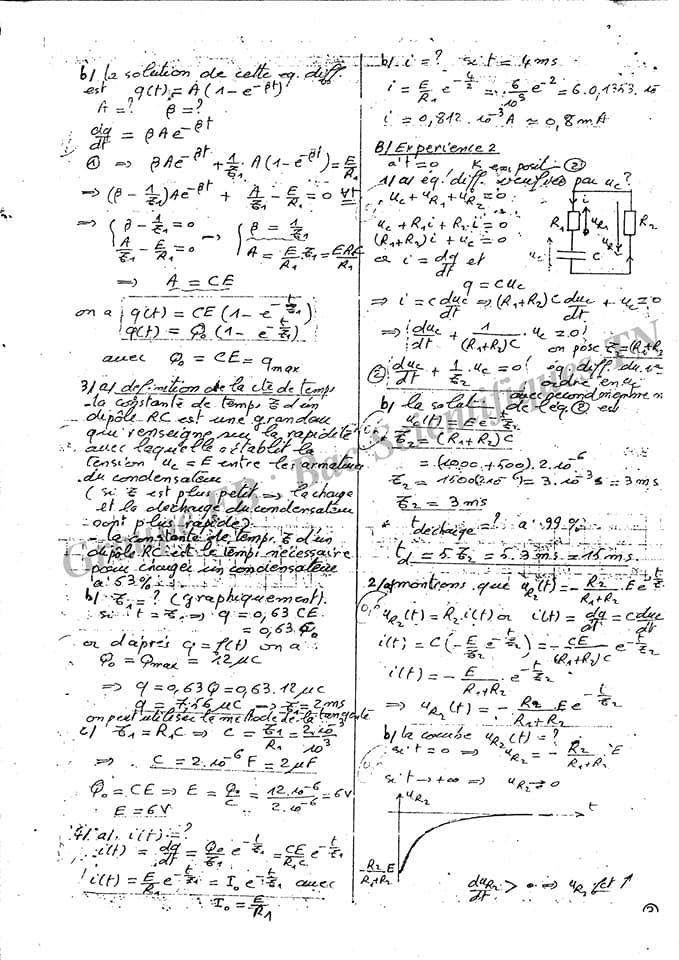 b/ la solution de cette eq. diff.
est q(t) = A(1-e^{-βt})
A=? β=?
dq/dt = βAe^{-βt}
① ⇒ βAe^{-βt} + 1/τ1 . A(1-e^{-βt}) = E/R1
⇒ (β - 1/τ1)Ae^{-βt} + A/τ1 - E/R1 = 0 ∀t
⇒ { β - 1/τ1 = 0 ⇒ { β = 1/τ1
A/τ1 - E/R1 = 0 A = E/R1 . τ1 =
⇒ A = CE
on a q(t) = CE (1 - e^{-t/τ1})
q(t) = Q0 (1 - e^{-t/τ1})
avec Q0 = CE = qmax
3/a) definition de la cte de temps
-la constante de temps τ d'un
dipôle RC est une grandeur
qui renseigne sur la rapidité
avec laquelle s'établit la
tension uc = E entre les armatures
du condensateur
(si τ est plus petit ⇒ la charge
et la décharge du condensateur
sont plus rapide)
- la constante de temps τ d'un
dipôle RC est le temps nécessaire
pour charger un condensateur
à 63%.
b/ τ1 = ? (graphiquement).
si t = τ1 ⇒ q = 0,63 CE
= 0,63.Q0
or d'après q = f(t) on a
Q0 = Qmax = 12 μC
⇒ q = 0,63Q = 0,63.12 μC
q = 7,56 μC → τ = 2 ms
on peut utiliser le methode de la tangente
c/ τ1 = R1C ⇒ C = τ1/R1 = 2.10^{-3}/10^3
⇒ C = 2.10^{-6} F = 2 μF
Q0 = CE ⇒ E = Q0/C = 12.10^{-6}/2.10^{-6} = 6V
E = 6V
4/a/. i(t) = ?
i(t) = dq/dt = Q0/τ1 e^{-t/τ1} = CE/R1C e^{-t/τ1}
i(t) = E/R1 e^{-t/τ1} = I0 e^{-t/τ1} avec
I0 = E/R1
b/ i = ? si t = 4 ms
i = E/R1 e^{-4/2} = 6/10^3 e^{-2} = 6.0,1353.10
i = 0,812.10^{-3} A ≃ 0,8 mA
B/ Experience 2
à t = 0 K en posit. ②
1/a) éq. diff. verifiée par uc ?
uc + uR1 + uR2 = 0
uc + R1i + R2i = 0
(R1+R2)i + uc = 0
or i = dq/dt et
q = Cuc
⇒ i = C duc/dt ⇒ (R1+R2)C duc/dt + uc = 0
⇒ duc/dt + 1/(R1+R2)C . uc = 0
on pose τ2 = (R1+R2
② duc/dt + 1/τ2 uc = 0 éq diff. du 1er
ordre en uc
second membre
b/ la solut de l'éq ② est
uc(t) = E e^{-t/τ2}
τ2 = (R1+R2)C
= (1000+500).2.10^{-6}
τ2 = 1500(2.10^{-6}) = 3.10^{-3} s = 3 ms
τ2 = 3 ms
* t decharge = ? à 99%
td = 5τ2 = 5.3 ms = 15 ms
2/a montrons que uR2(t) = - R2/R1+R2 . E e^{-t/τ2}
uR2(t) = R2.i(t) or i(t) = dq/dt = C duc/dt
i(t) = C(-E/τ2 e^{-t/τ2}) = - CE/(R1+R2)C e^{-t/τ2}
i(t) = - E/R1+R2 . e^{-t/τ2}
⇒ uR2(t) = - R2/R1+R2 . E e^{-t/τ2}
b/ la courbe uR2(t) = ?
si t = 0 ⇒ uR2 = - R2/R1+R2 . E
si t → +∞ ⇒ uR2 → 0
uR2
t
- R2/R1+R2 E
duR2/dt > 0 ⇒ uR2 fct ↑
R1
uR1
i
R2
uR2
uc
C
Bac Scientifiques TN